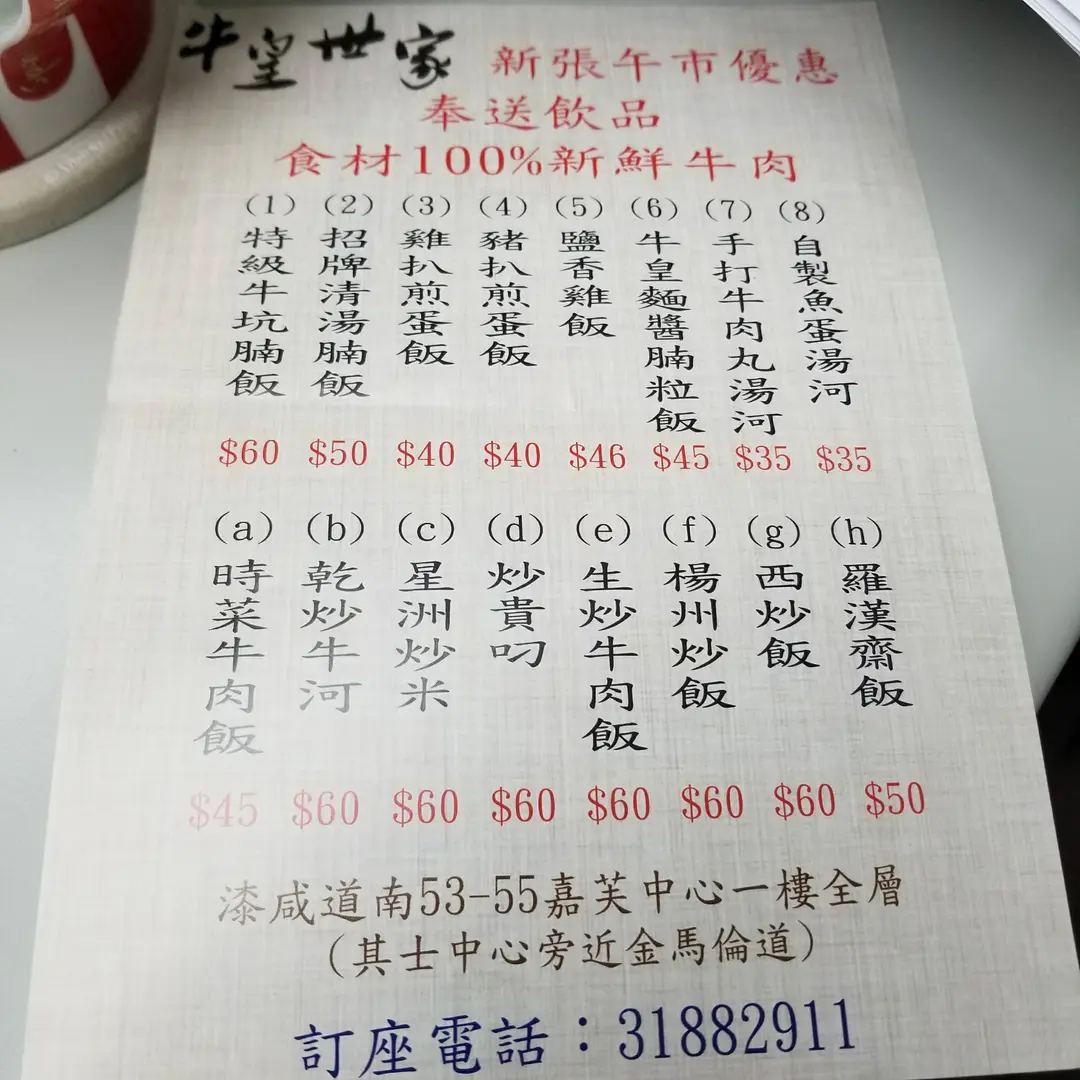 牛皇世家 新張午市優惠
奉送飲品
食材100%新鮮牛肉
(1) 特級牛坑腩飯 $60
(2) 招牌清湯腩飯 $50
(3) 雞扒煎蛋飯 $40
(4) 豬扒煎蛋飯 $40
(5) 鹽香雞飯 $46
(6) 牛皇麵醬腩粒飯 $45
(7) 手打牛肉丸湯河 $35
(8) 自製魚蛋湯河 $35
(a) 時菜牛肉飯 $45
(b) 乾炒牛河 $60
(c) 星洲炒米 $60
(d) 炒貴叼 $60
(e) 生炒牛肉飯 $60
(f) 楊州炒飯 $60
(g) 西炒飯 $60
(h) 羅漢齋飯 $50
漆咸道南53-55嘉芙中心一樓全層
(其士中心旁近金馬倫道)
訂座電話：31882911